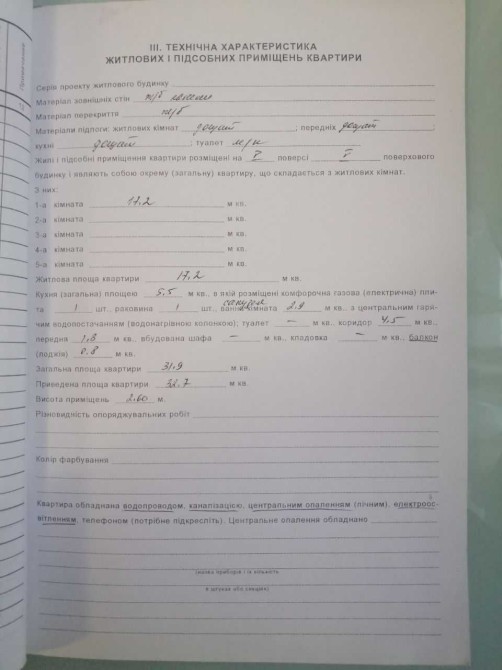 III. ТЕХНІЧНА ХАРАКТЕРИСТИКА
ЖИТЛОВИХ І ПІДСОБНИХ ПРИМІЩЕНЬ КВАРТИРИ
Серія проекту житлового будинку
Матеріал зовнішніх стін з/б панелі
Матеріал перекриття з/б
Матеріали підлоги: житлових кімнат дощат ; передніх дощат ;
кухні дощат ; туалет м/п
Жилі і підсобні приміщення квартири розміщені на I поверсі V поверхового
будинку і являють собою окрему (загальну) квартиру, що складається з житлових кімнат.
З них:
1-а кімната 17.2 м кв.
2-а кімната м кв.
3-а кімната м кв.
4-а кімната м кв.
5-а кімната м кв.
Житлова площа квартири 17.2 м кв.
Кухня (загальна) площею 5.5 м кв., в якій розміщені комфорочна газова (електрична) пли-
та 1 шт., раковина 1 шт., ванна кімната санвузол 2.9 м кв., з центральним гаря-
чим водопостачанням (водонагрівною колонкою); туалет — м кв., коридор 4.5 м кв.,
передня 1.8 м кв., вбудована шафа — м кв., кладовка — м кв., балкон
(лоджія) 0.8 м кв.
Загальна площа квартири 31.9 м кв.
Приведена площа квартири 32.7 м кв.
Висота приміщень 2.60 м.
Різновидність опоряджувальних робіт
Колір фарбування
Квартира обладнана водопроводом, каналізацією, центральним опаленням (пічним), електроос-
вітленням, телефоном (потрібне підкресліть). Центральне опалення обладнано
(назва приборів і їх кількість